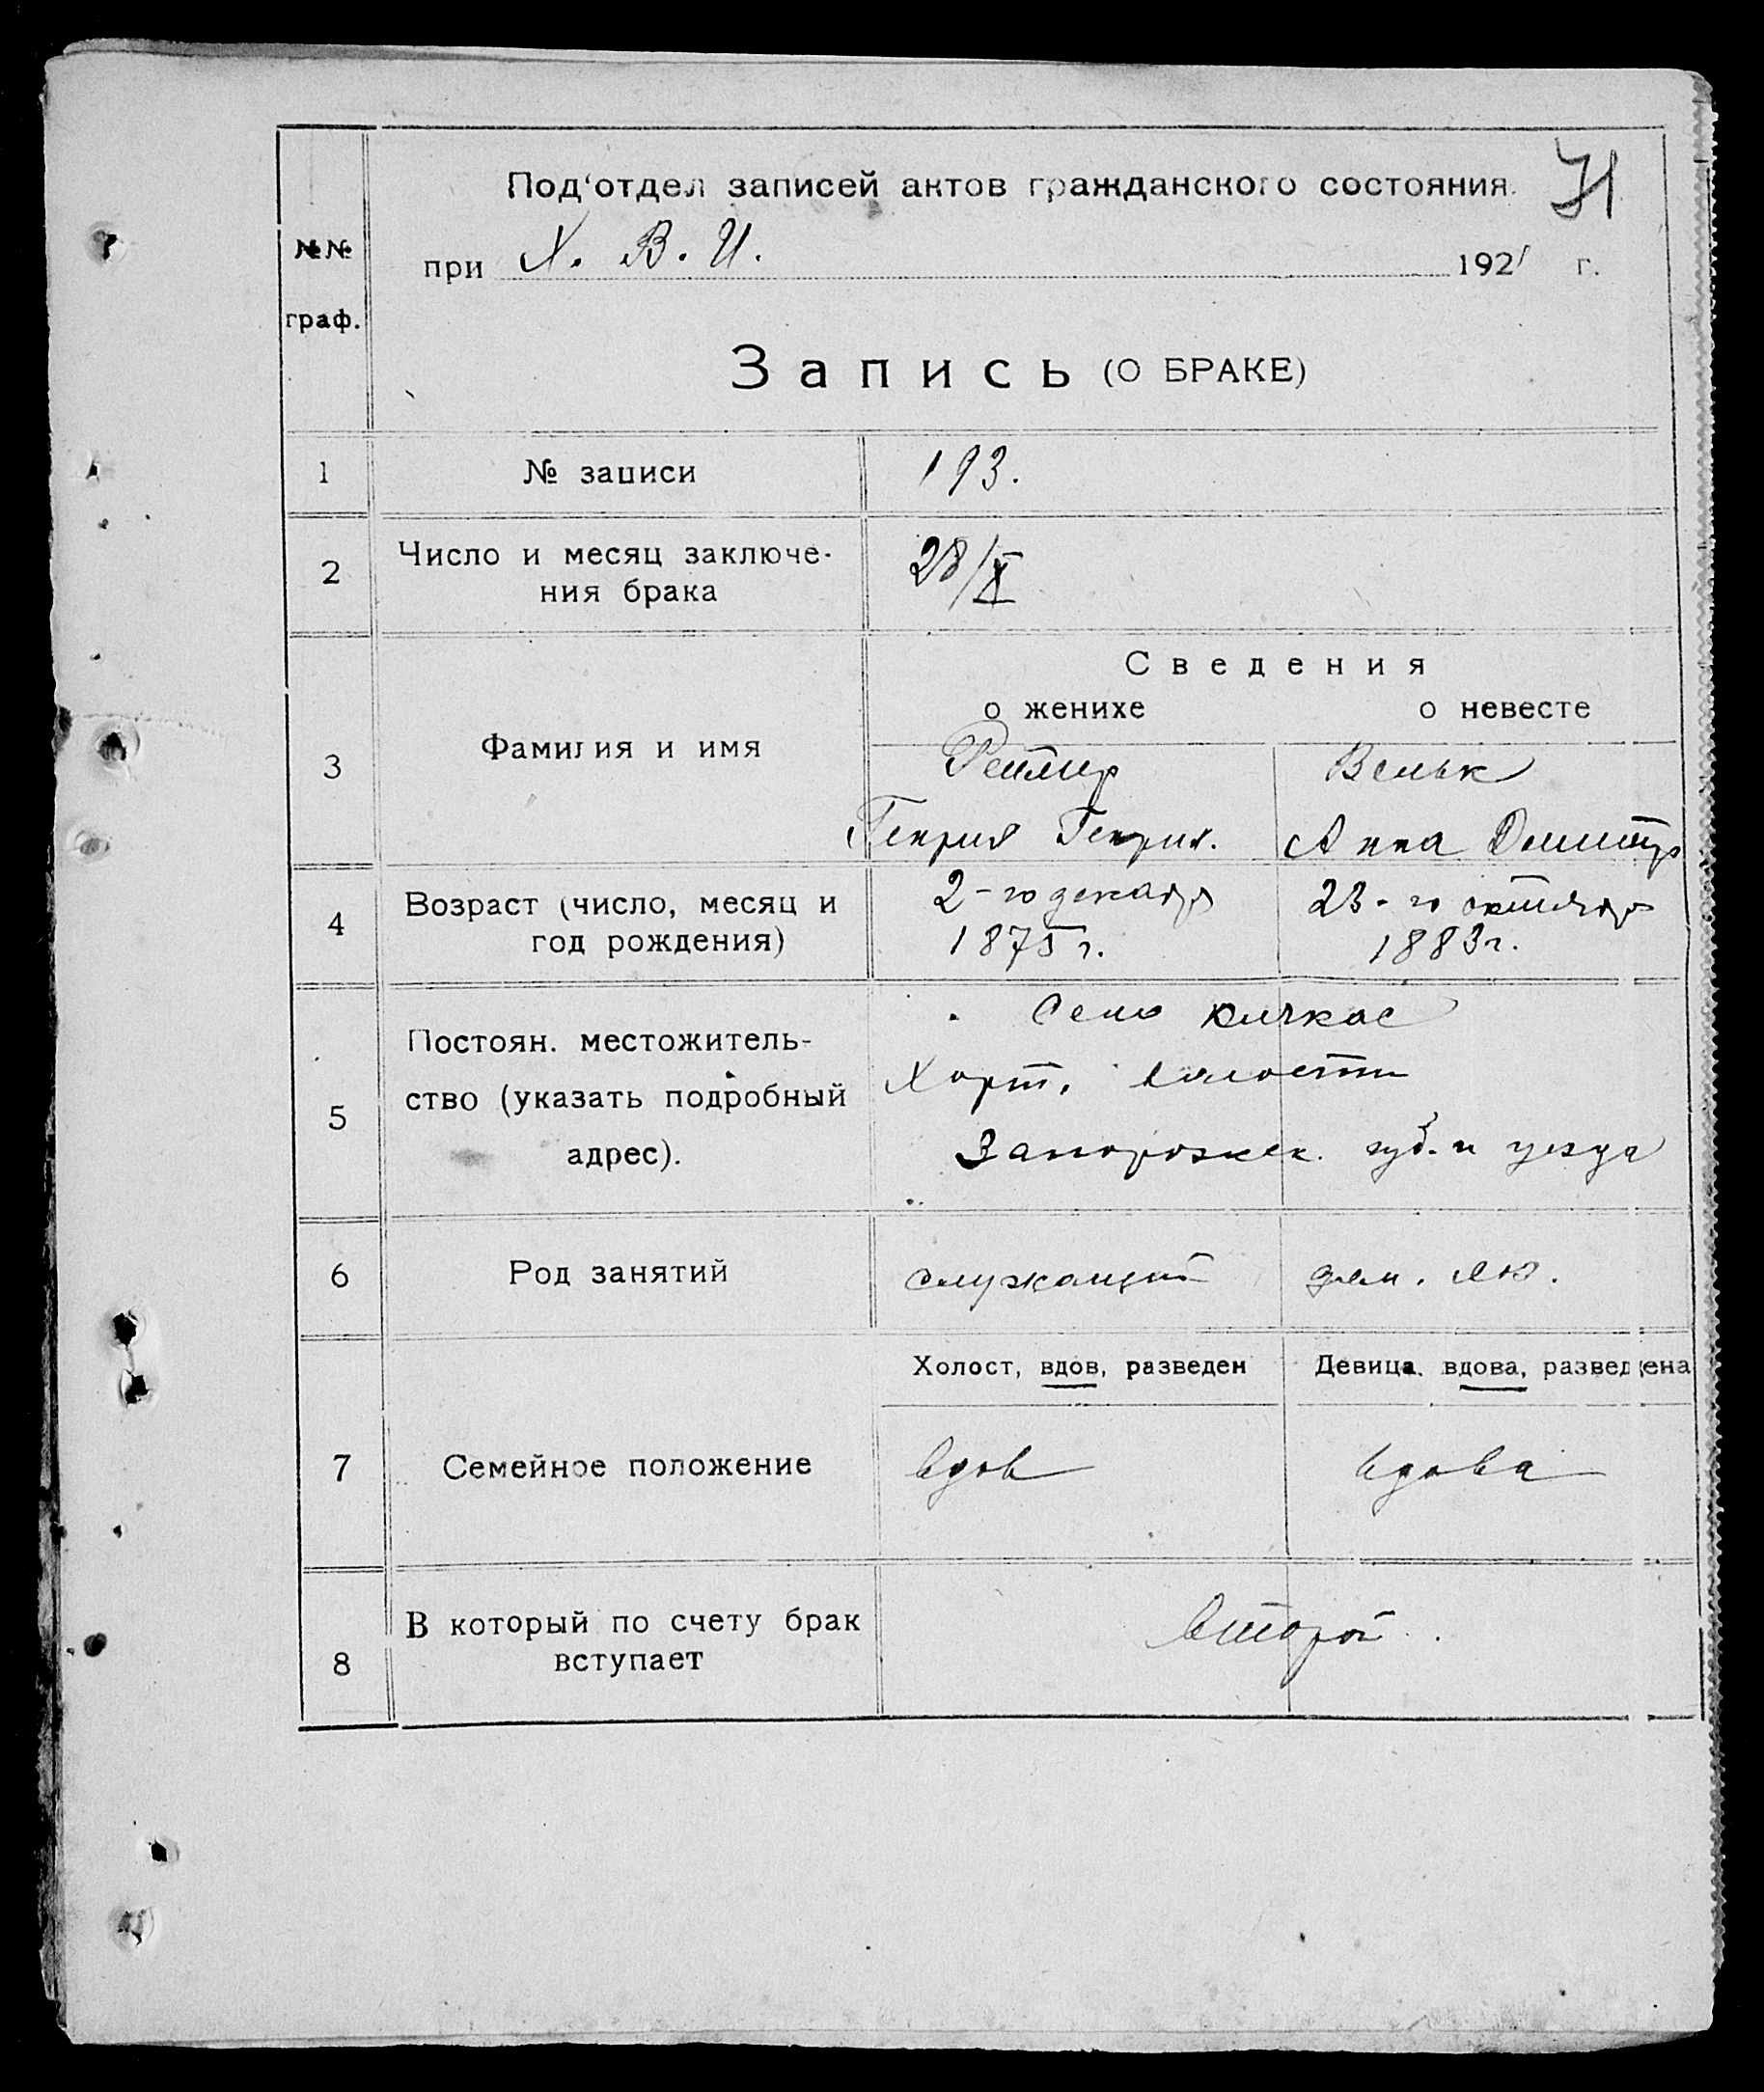 71
Под'отдел записей актов гражданского состояния.
при Х. В. И. 1921 г.
№№ граф.
Запись (О БРАКЕ)
1 № записи 193.
2 Число и месяц заключе-
ния брака 28/X
Сведения
о женихе о невесте
3 Фамилия и имя
Генрих Генрих. Анна
4 Возраст (число, месяц и
год рождения)
2-го декабр 23-го октябр
1875 г. 1883 г.
5 Постоян. местожитель-
ство (указать подробный
адрес).
Село Кичкас
Хорт. волости
Запорожск. губ. и уезда
6 Род занятий служащий дом. хоз.
Холост, вдов, разведен Девица, вдова, разведена
7 Семейное положение вдов вдова
8 В который по счету брак
вступает второй.